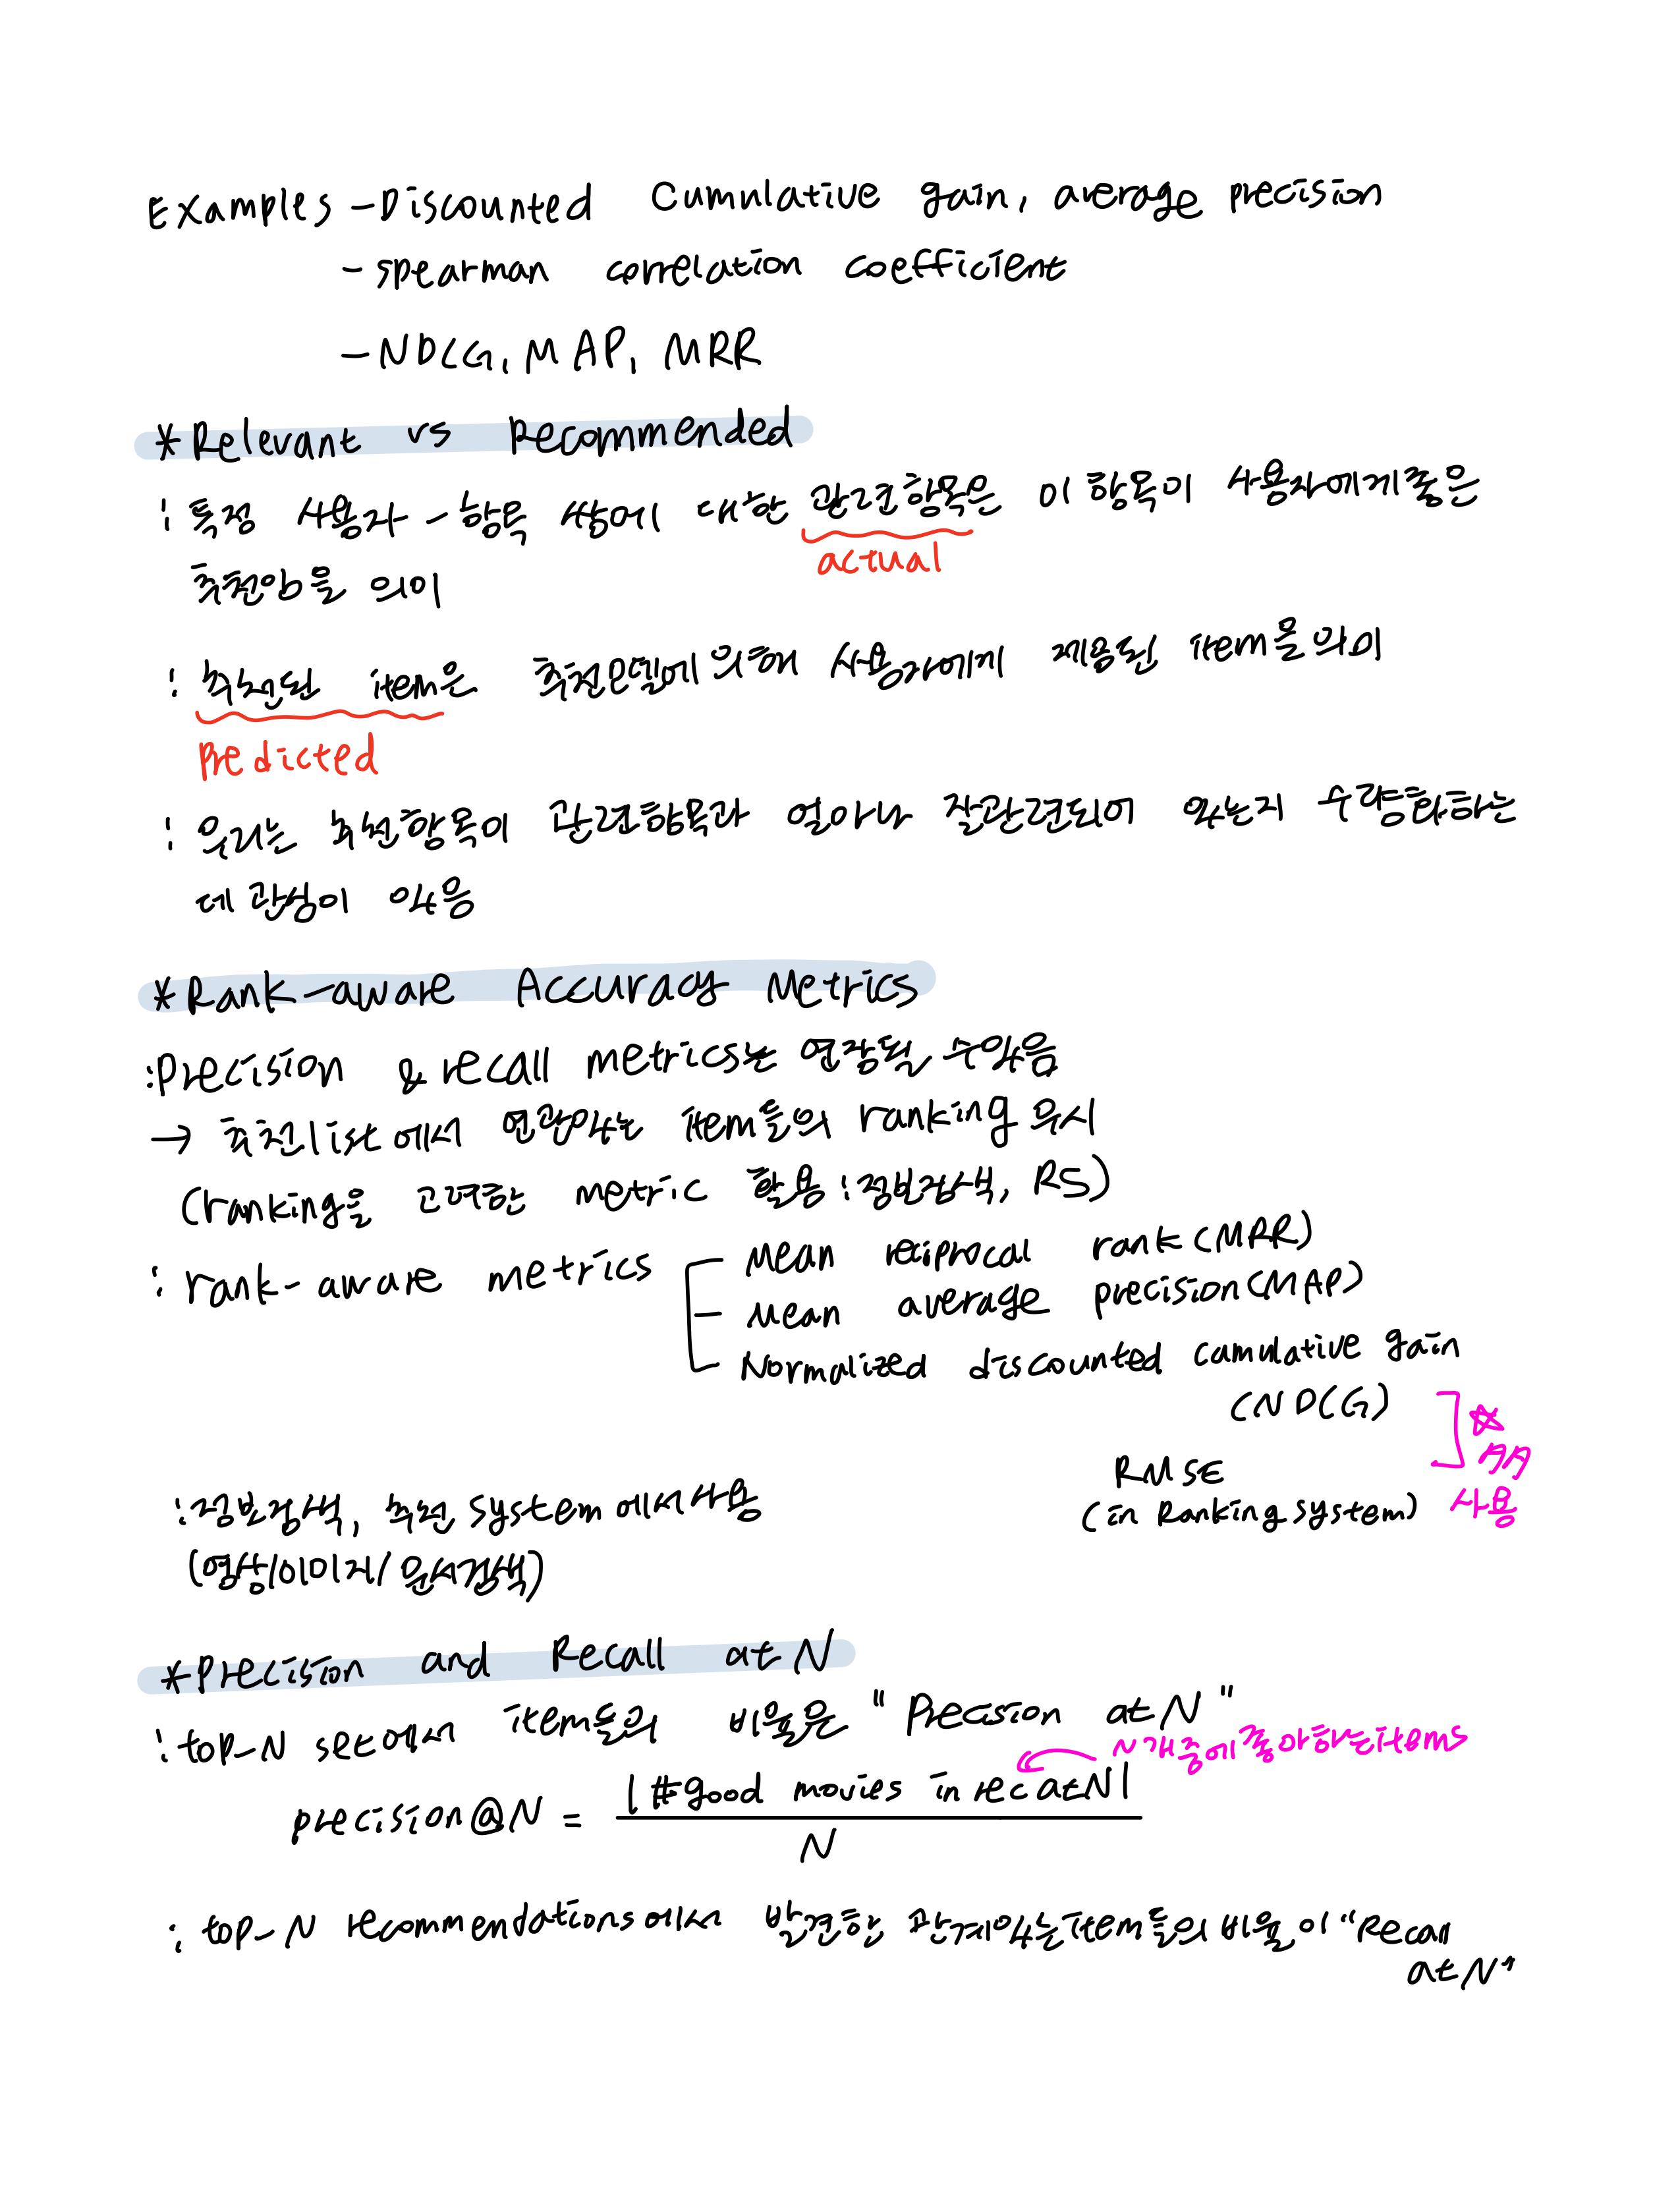 Examples - Discounted Cumulative gain, average precision
- spearman correlation coefficient
- NDCG, MAP, MRR
* Relevant vs Recommended
: 특정 사용자-항목 쌍에 대한 관련항목은 이 항목이 사용자에게 좋은
actual
추천임을 의미
: 추천된 item은 추천모델에 의해 사용자에게 제공된 item을 의미
Predicted
: 우리는 추천항목이 관련항목과 얼마나 잘관련되어 있는지 수량화하는
데 관심이 있음
* Rank-aware Accuracy Metrics
: Precision & recall metrics는 연장될 수있음
→ 추천list에서 연관있는 item들의 ranking 무시
(ranking을 고려한 metric 활용 : 정보검색, RS)
: rank-aware metrics
Mean reciprocal rank (MRR)
Mean average precision (MAP)
Normalized discounted cumulative gain
(NDCG)
RMSE
(in Ranking system)
사용
: 정보검색, 추천 system에서 사용
(영상/이미지/문서검색)
* Precision and Recall at N
: top-N set에서 item들의 비율은 "Precision at N"
N개 중에 좋아하는 items
precision@N = |#good movies in rec at N|
N
: top-N recommendations에서 발견한 관계있는 item들의 비율이 "Recall
at N"